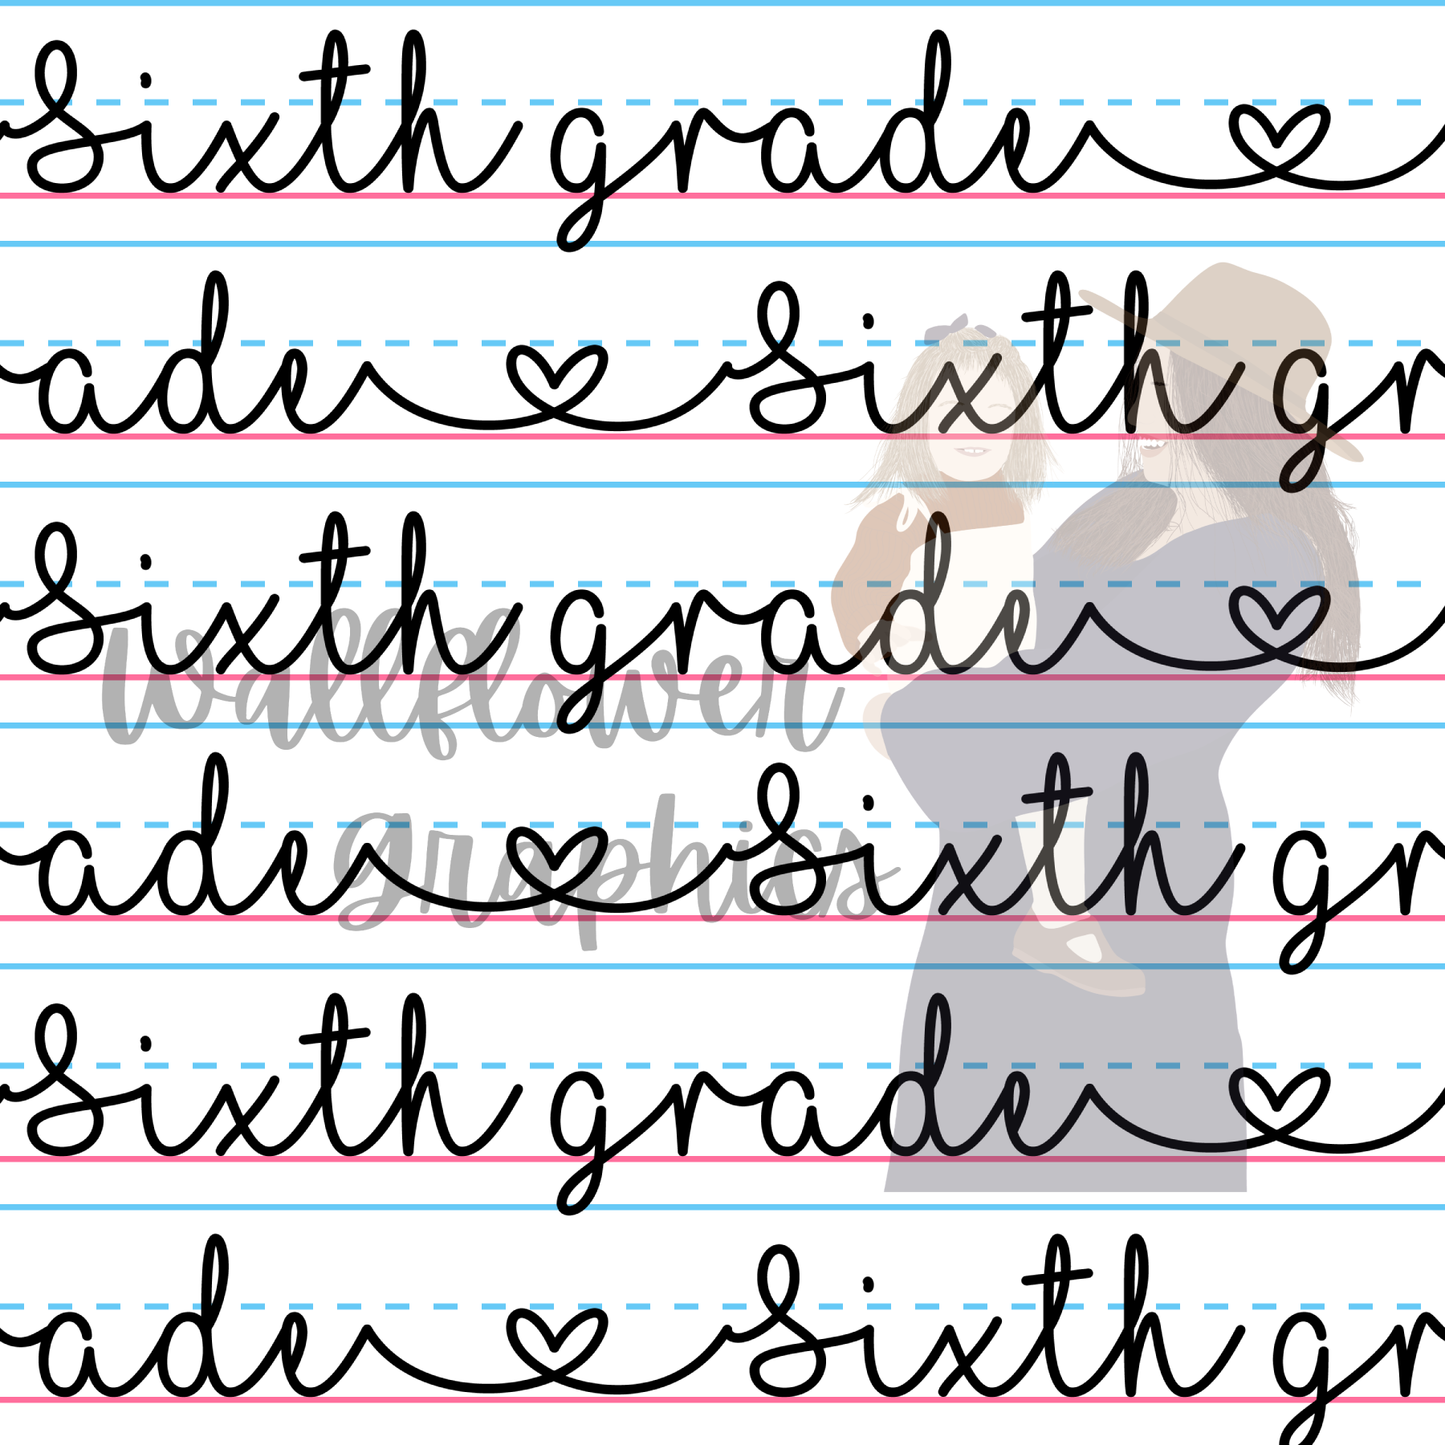 sixth grade
ade sixth gr
sixth grade
wallflower
ade sixth gr
graphics
sixth grade
ade sixth gr